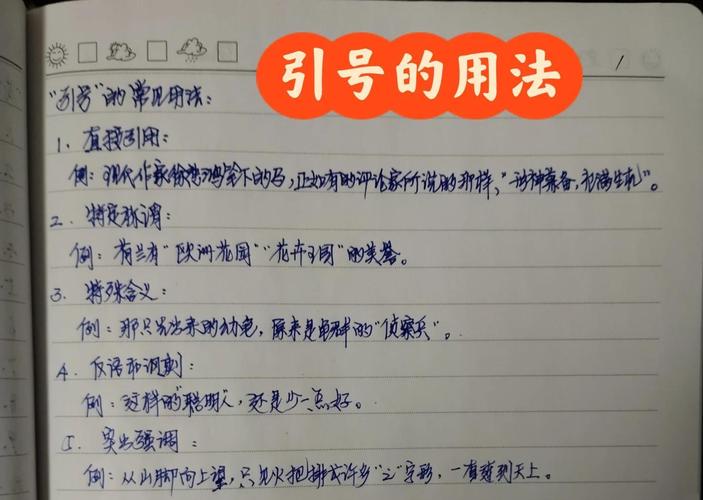 引号的用法
1
"引号"的常见用法:
1、直接引用:
例:现代作家徐悲鸿笔下的马,正如有的评论家所说的那样,"形神兼备,充满生机"。
2、特定称谓:
例:荷兰有"欧洲花园""花卉王国"的美誉。
3、特殊含义:
例:那只先出来的幼龟,原来是龟群的"侦察兵"。
4、反语和讽刺:
例:这样的"聪明人",还是少一点好。
5、突出强调:
例:从山脚向上望,只见火把排成许多"之"字形,一直连到天上。